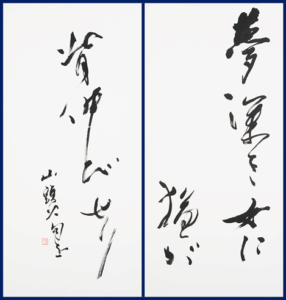 夢深き女に
猫が
背伸びせり
山頭火句